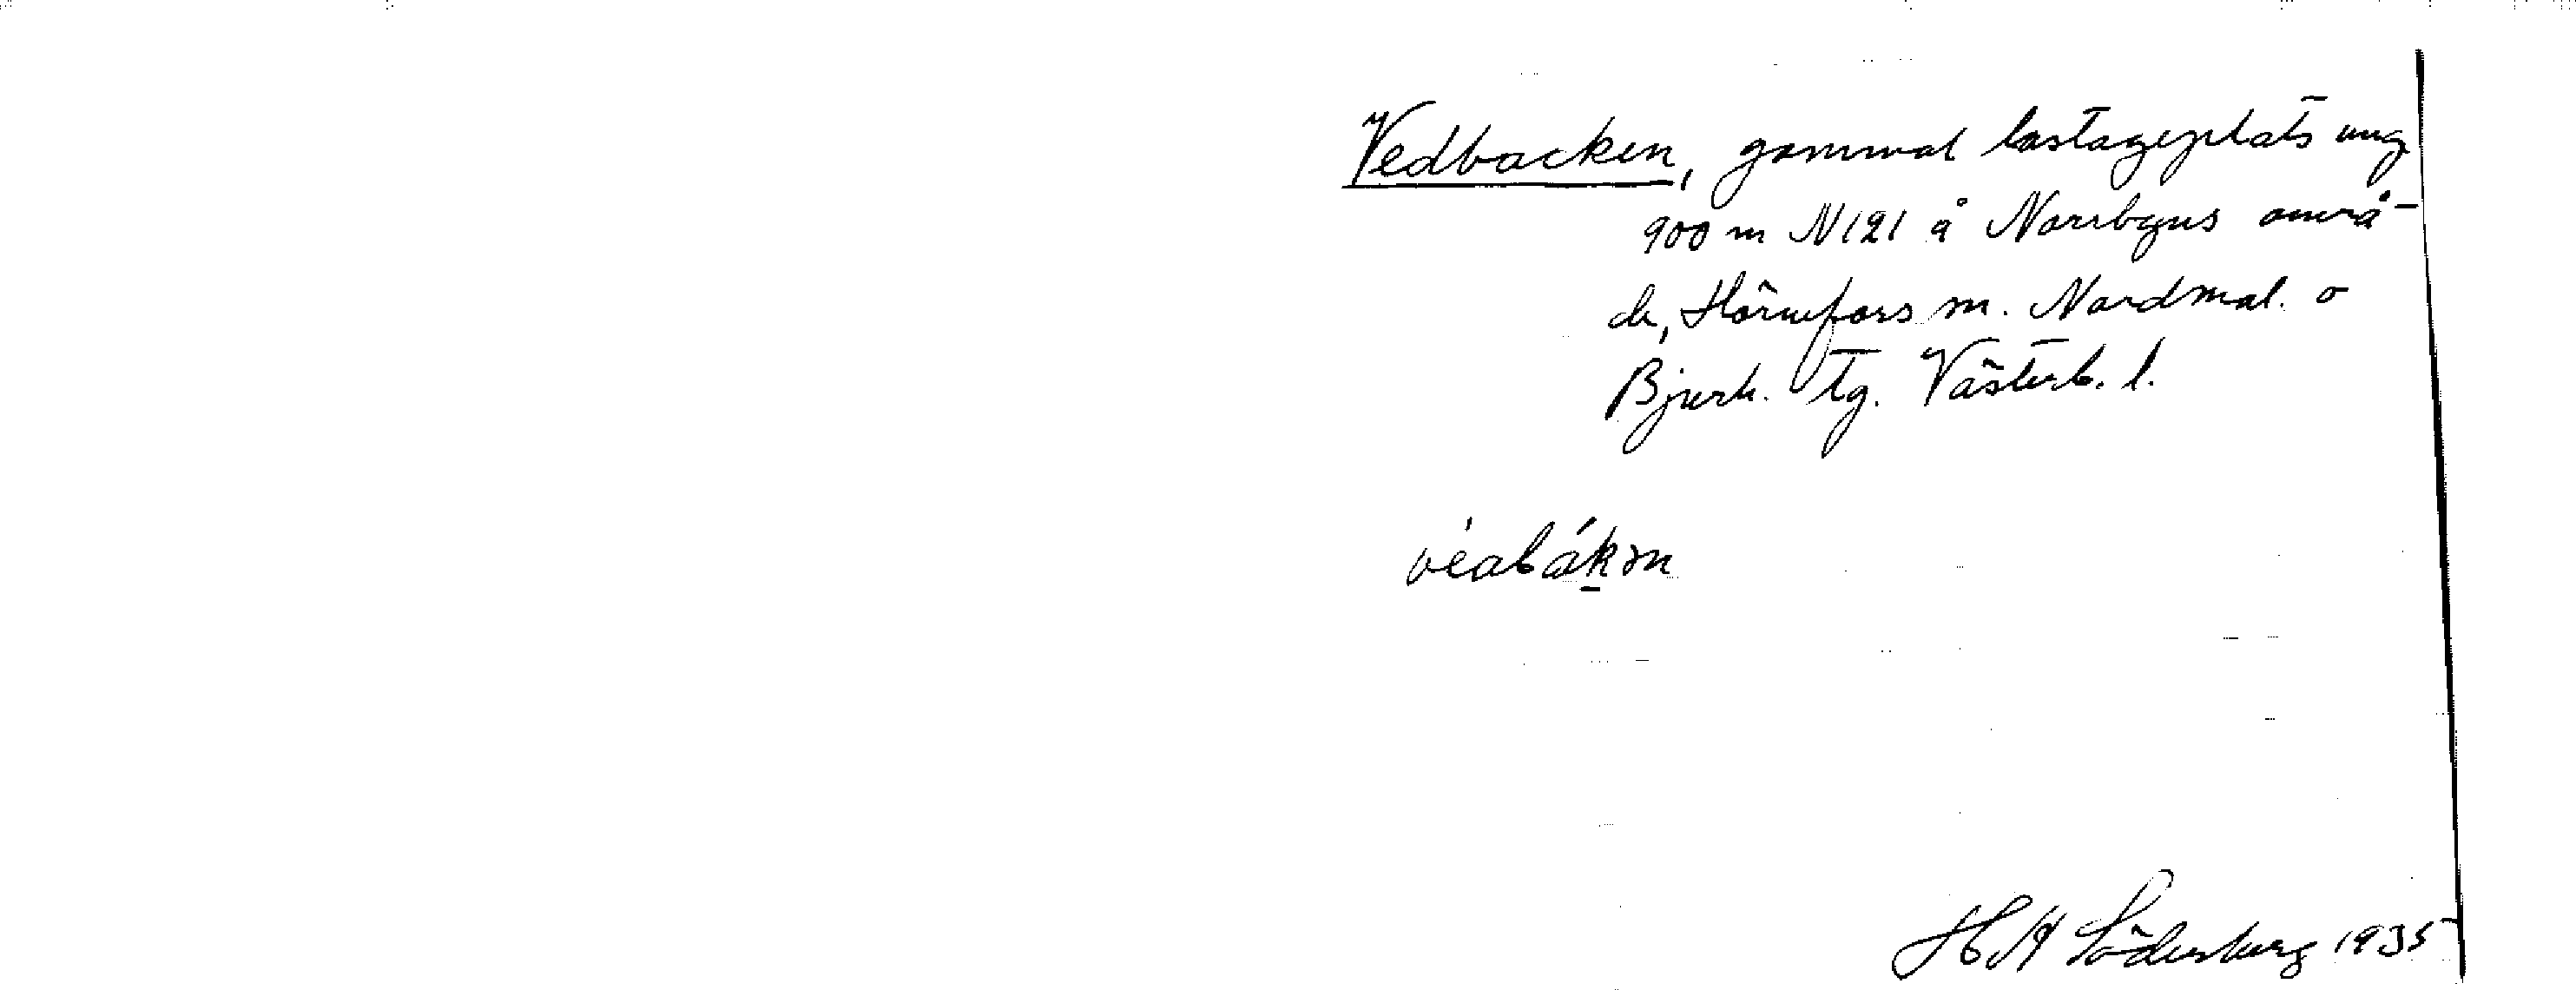 Vedbacken, gammal lastageplats ung
900 m N121 å Norrbyns områ-
de, Hörnefors sn. Nordmal. o
Bjurh. tg. Västerb. l.
véabákən
H A Söderberg 1935